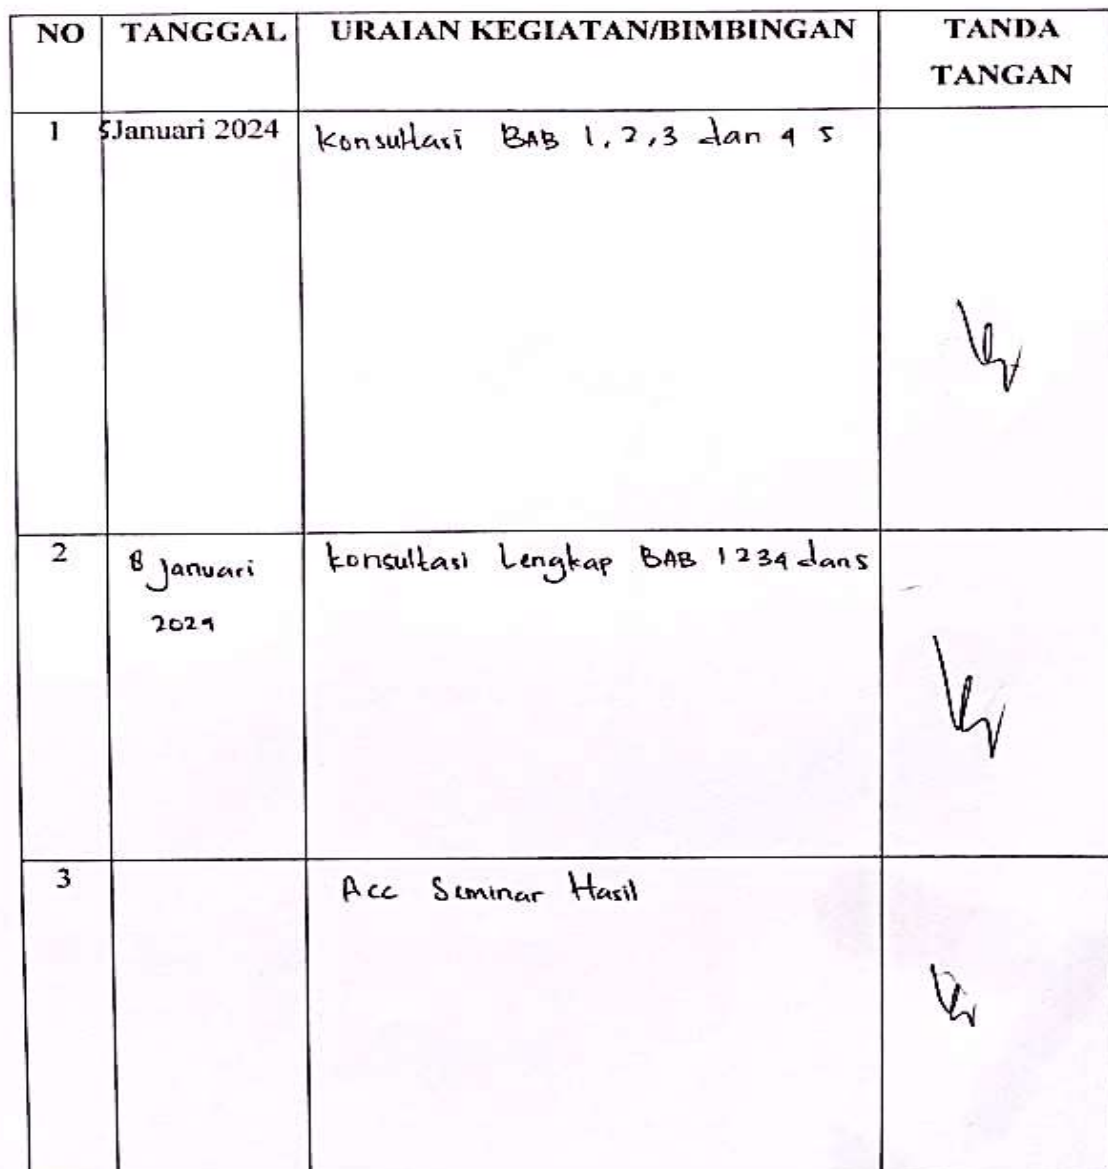 NO TANGGAL URAIAN KEGIATAN/BIMBINGAN TANDA
TANGAN
1 5Januari 2024 Konsultasi BAB 1, 2, 3 dan 4 5
2 8 Januari Konsultasi Lengkap BAB 1234 dan 5
2024
3 Acc Seminar Hasil